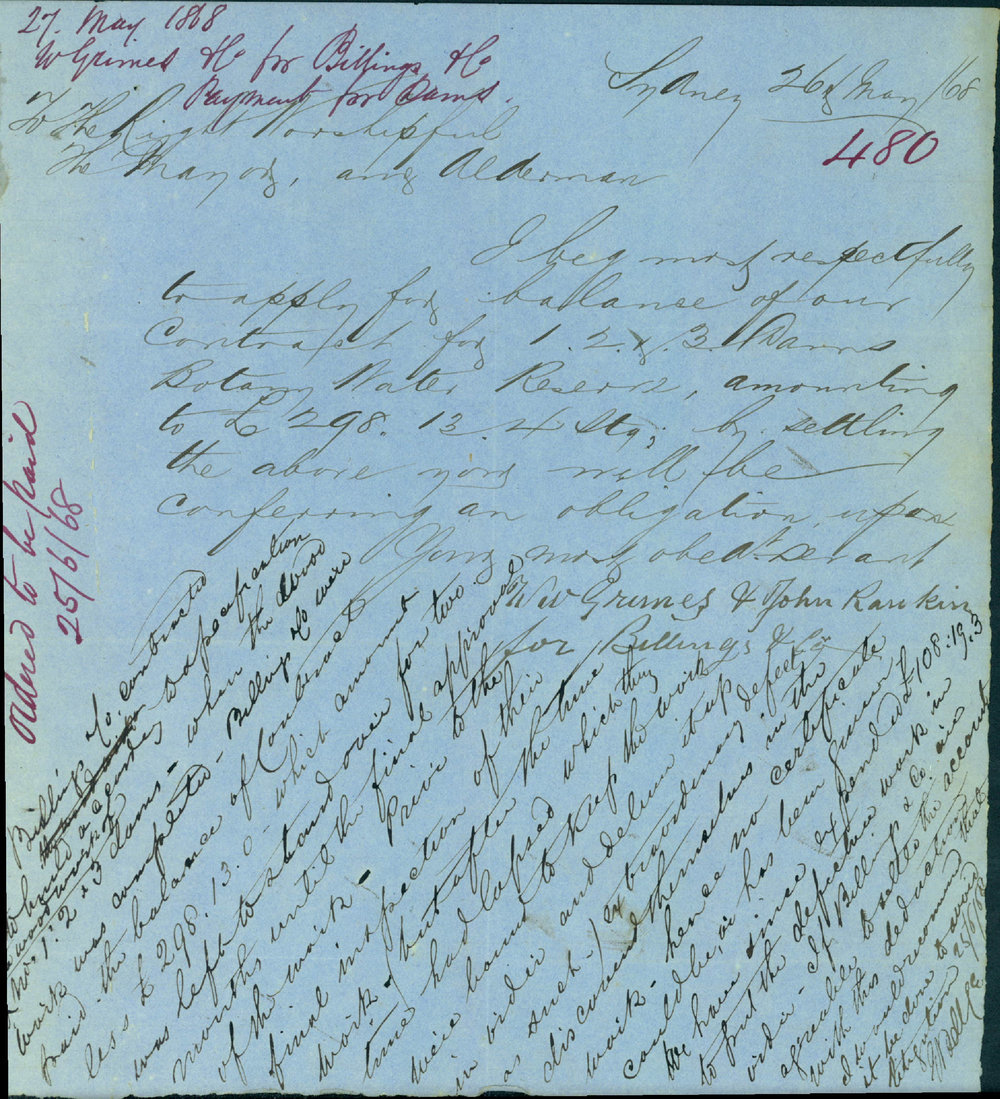 27. May 1868
W Grimes & Co for Billings & Co
Payment for Dams.
Sydney 26th May /68
480
To The Right Worshipful
The Mayor, and Alderman
I beg most respectfully
to apply for ballance of our
Contract for 1. 2. & 3. Dams
Botany Water Reserve, amounting
to £ 298. 13. 4 Stg; by settling
the above you will be
conferring an obligation upon
Your most obedt servant
W W Grimes & John Rankin
for Billings & Co
Ordered to be paid
25/6/68
Billings & Co. contracted
when the wood
work was completed - Billings & Co were
paid the balance of Contract
less £ 298. 13. 0 - which amount
was left to stand over for two
months until the final approval
of the work - Previous to the
final inspection of their
work (but after the time
time had lapsed which they
were bound to keep the work
in order and deliver it up
as such -) extraordinary defects
discovered themselves in the
work - hence no certificate
could be, or has been given
We have since expended £108:19.3
to put the defective work in
order - If Billings & Co. are
agreeable to settle the account
with this deduction
I would recommend that
it be done to avoid
litigation 25/6/68
Bell CE